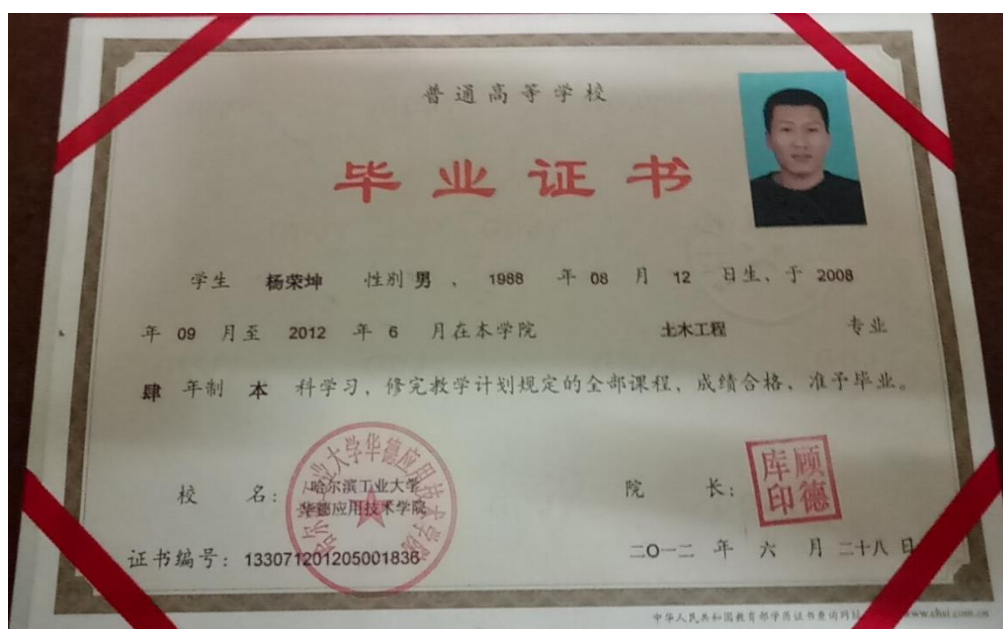 普通高等学校
毕业证书
学生 杨荣坤 性别 男 、 1988 年 08 月 12 日生、于 2008
年 09 月至 2012 年 6 月在本学院 土木工程 专业
肆 年制 本 科学习，修完教学计划规定的全部课程，成绩合格，准予毕业。
校 名：哈尔滨工业大学
华德应用技术学院
院 长：
顾德
库印
证书编号：133071201205001836
二〇一二 年 六 月 二十八 日
中华人民共和国教育部学历证书查询网址
www.chsi.com.cn